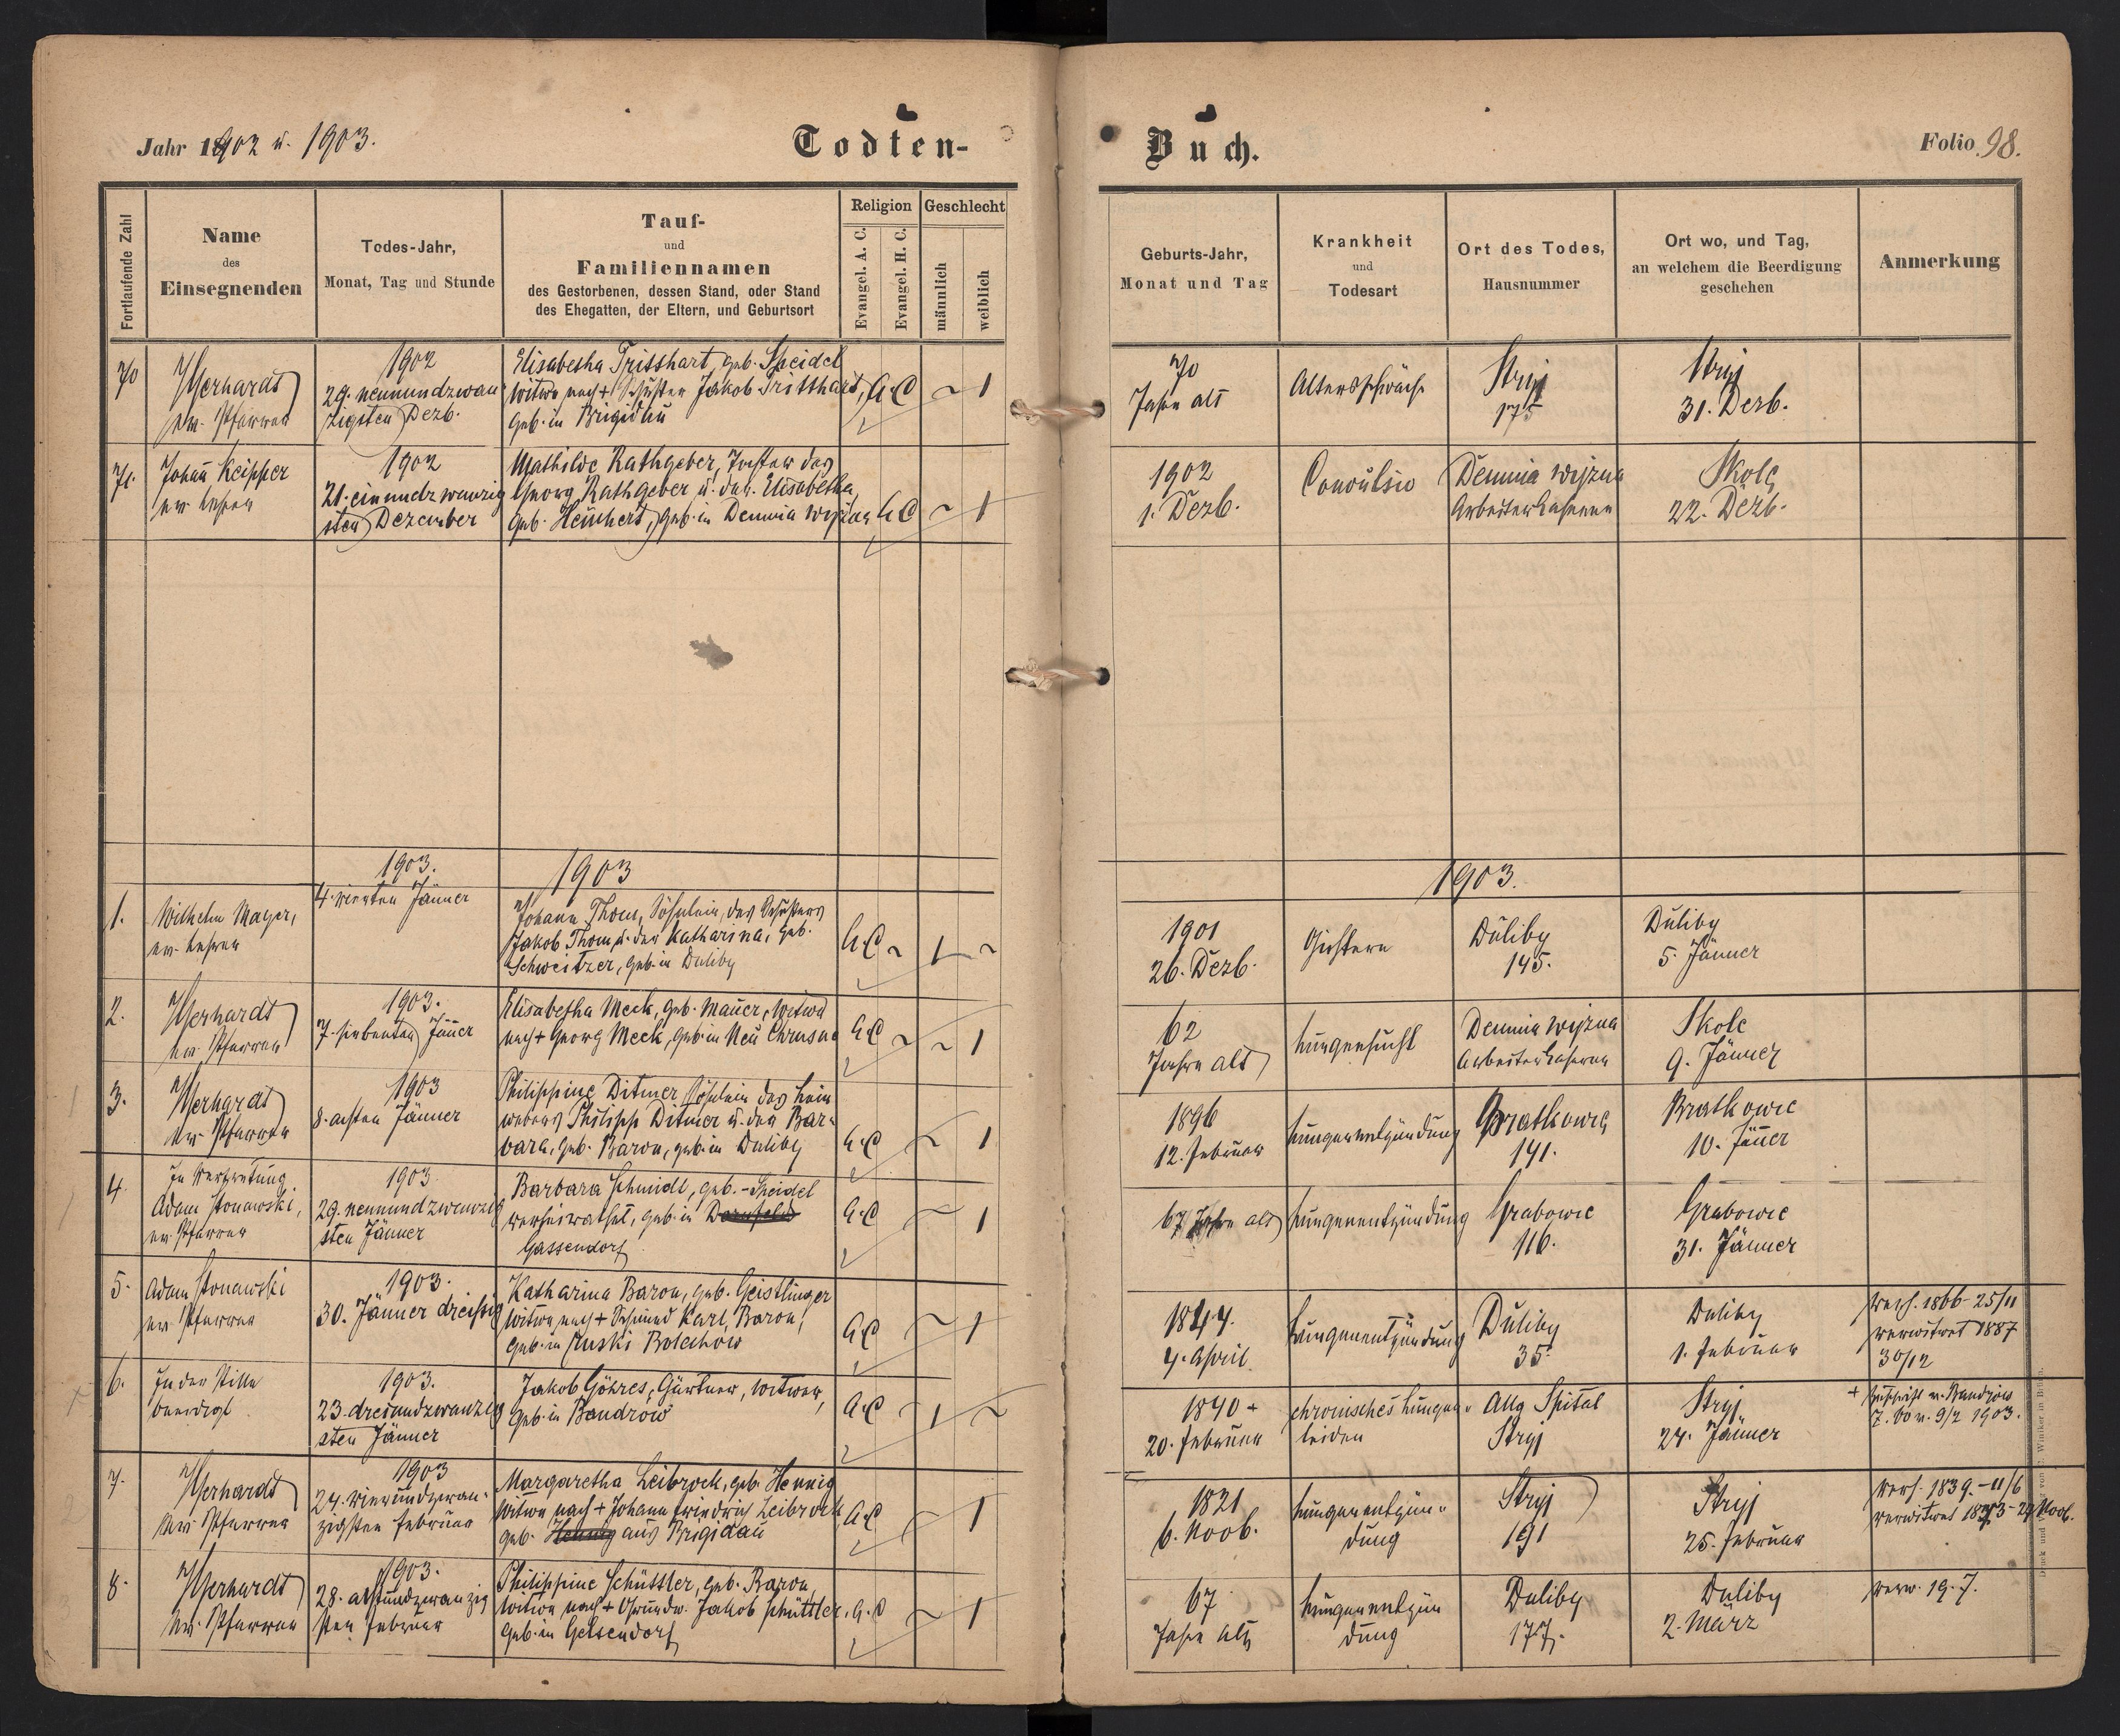 Jahr 1902 u. 1903.
Todten-
Buch.
Folio 98.
Fortlaufende Zahl
Name
des
Einsegnenden
Todes-Jahr,
Monat, Tag und Stunde
Tauf-
und
Familiennamen
des Gestorbenen, dessen Stand, oder Stand
des Ehegatten, der Eltern, und Geburtsort
Religion
Evangel. A. C.
Evangel. H. C.
Geschlecht
männlich
weiblich
Geburts-Jahr,
Monat und Tag
Krankheit
und
Todesart
Ort des Todes,
Hausnummer
Ort wo, und Tag,
an welchem die Beerdigung
geschehen
Anmerkung
70
ev. Pfarrer
1902
29. neunundzwan
zigsten Dezb.
Elisabetha Tritthart, geb. Speidel
Witwe nach + Schuster Jakob Tritthart,
geb. in Brigidau
A. C ~ 1
70
Jahre alt
Altersschwäche
Stryj
175
Stryj
31. Dezb.
71.
Johañ Keipper
ev. Lehrer
1902
21. einundzwanzig
sten Dezember
Mathilde Rathgeber, Tochter des
Georg Rathgeber u. der Elisabetha,
geb. Heinhert, geb. in Demnia wyżna
A C ~ 1
1902
1. Dezb.
Convulsio
Demnia wyżna
Arbeiterkaserne
Skole
22. Dezb.
1903.
1903
1903.
1.
Wilhelm Mayer,
ev. Lehrer
4. vierten Jänner
Johann Thom, Söhnlein des Schusters
Jakob Thom u. der Katharina, geb.
Schweitzer, geb. in Duliby
A. C ~ 1 ~
1901
26. Dezb.
Duliby
145.
Duliby
5. Jänner
2.
ev. Pfarrer
1903.
7. siebenten Jäner
Elisabetha Meck, geb. Mauer, Witwe
nach + Georg Meck, geb. in Neu Chrusno
A C ~ ~ 1
62
Jahre alt
Lungensucht
Demnia wyżna
Arbeiterkaserne
Skole
9. Jänner
3.
ev. Pfarrer
1903
8. achten Jänner
Philippine Ditmer, Söhnlein des Lein
webers Philipp Ditmer u. der Bar-
bara, geb. Baron, geb. in Duliby
A. C ~ 1
1896
12. Februar
Lungenentzündung
Bratkowce
141.
Bratkowce
10. Jäner
4.
In Vertretung
Adam Stonawski,
ev. Pfarrer
1903
29. neunundzwanzig
sten Jänner
Barbara Schmidt, geb. Speidel
verheirathet, geb. in Dornfeld
Gassendorf
A. C ~ 1
67 Jahre alt
Lungenentzündung
Grabowce
116.
Grabowce
31. Jänner
5.
Adam Stonawski
ev. Pfarrer
1903.
30. Jänner dreißig
Katharina Baron, geb. Geistlinger
Witwe nach + Schmied Karl Baron,
geb. in Ruski Bolechow
A C ~ 1
1844.
4. April
Lungenentzündung
Duliby
35.
Duliby
1. Februar
verh. 1866 - 25/11
verwitwet 1887
30/12
6.
In der Stille
beerdigt
1903.
23. dreiundzwanzig
sten Jänner
Jakob Göhres, Gärtner, Witwer,
geb. in Bandrow
A. C ~ 1 ~
1840 +
20. Februar
chronisches Lungen-
leiden
Allg Spital
Stryj
Stryj
24. Jänner
+ Zuschrift v. Bandrow
Z. 60 v. 9/2 1903.
7.
ev. Pfarrer
1903
24. vierundzwan-
zigsten Februar
Margaretha Leibrock, geb. Hennig
Witwe nach + Johann Friedrich Leibrock
geb. Hennig aus Brigidau
A. C 1
1821
6. Novb.
Lungenentzün-
dung
Stryj
191
Stryj
25. Februar
verh. 1839. - 11/6
8.
ev. Pfarrer
1903.
28. achtundzwanzig
sten Februar
Philippine Schüttler, geb. Baron,
Witwe nach + Grundw. Jakob Schüttler,
geb. in Gelsendorf
A. C ~ 1
67
Jahre alt
Lungenentzün
dung
Duliby
177.
Duliby
2. März
verw. 19. 7.